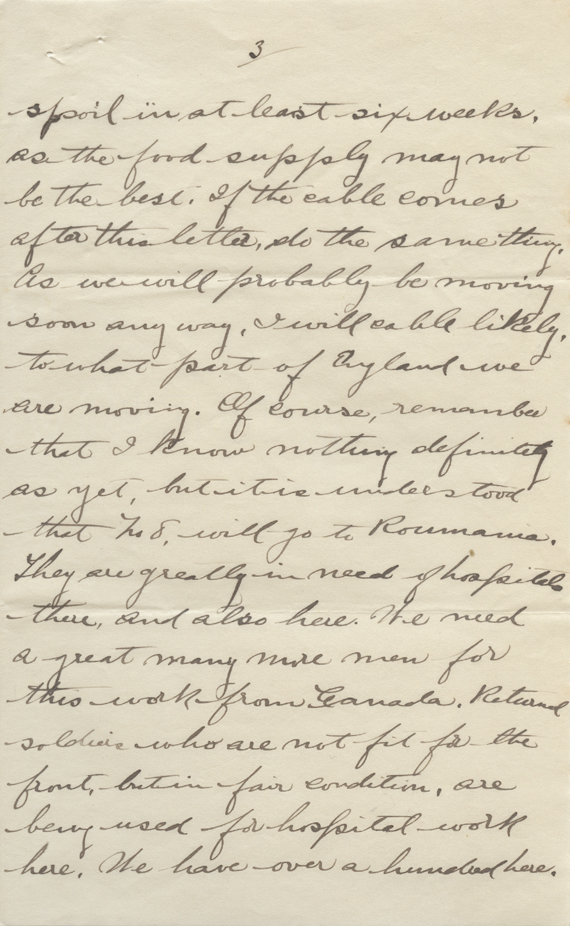 3
spoil in at least six weeks,
as the food supply may not
be the best. If the cable comes
after this letter, do the same thing.
As we will probably be moving
soon any way, I will cable likely,
to what part of England we
are moving. Of course, remember
that I know nothing definitely
as yet, but it is understood
that No 8, will go to Roumania.
They are greatly in need of hospitals
there, and also here. We need
a great many more men for
this work from Canada. Returned
soldiers who are not fit for the
front, but in fair condition, are
being used for hospital work
here. We have over a hundred here.